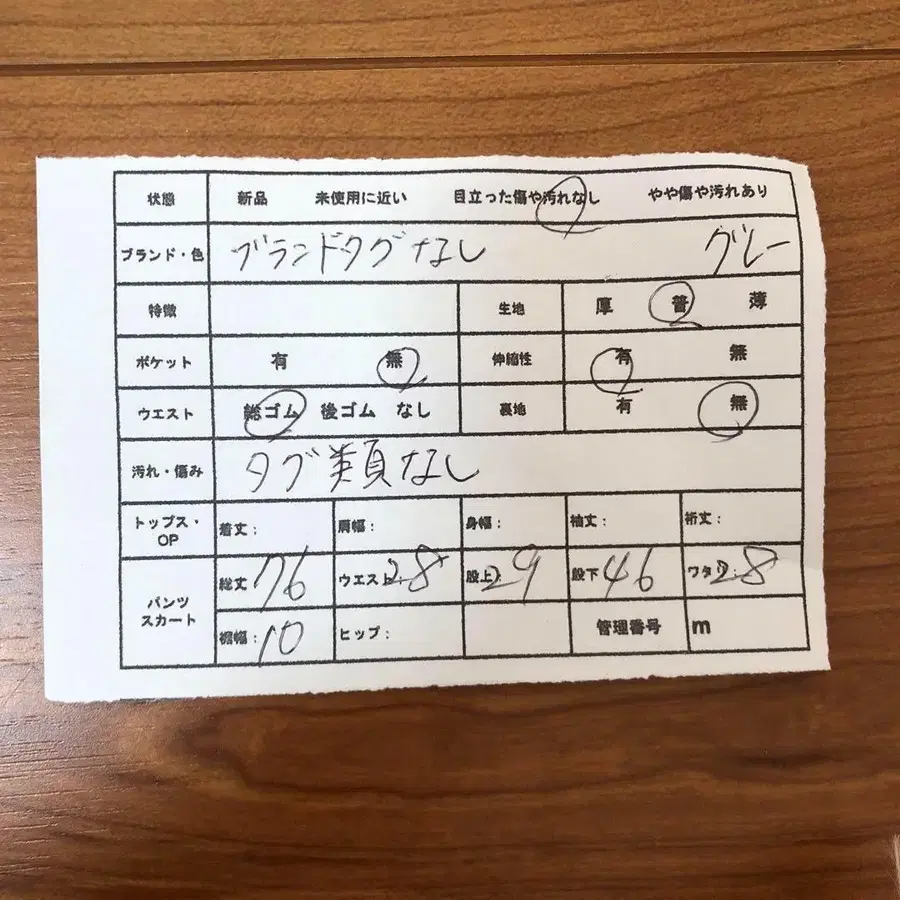 状態 新品 未使用に近い 目立った傷や汚れなし やや傷や汚れあり
ブランド・色 ブランドタグなし グレー
特徴 生地 厚 普 薄
ポケット 有 無 伸縮性 有 無
ウエスト 総ゴム 後ゴム なし 裏地 有 無
汚れ・傷み タグ類なし
トップス・OP 着丈: 肩幅: 身幅: 袖丈: 裄丈:
パンツ スカート 総丈 76 ウエスト 28 股上: 29 股下 46 ワタリ: 28
裾幅: 10 ヒップ: 管理番号 m